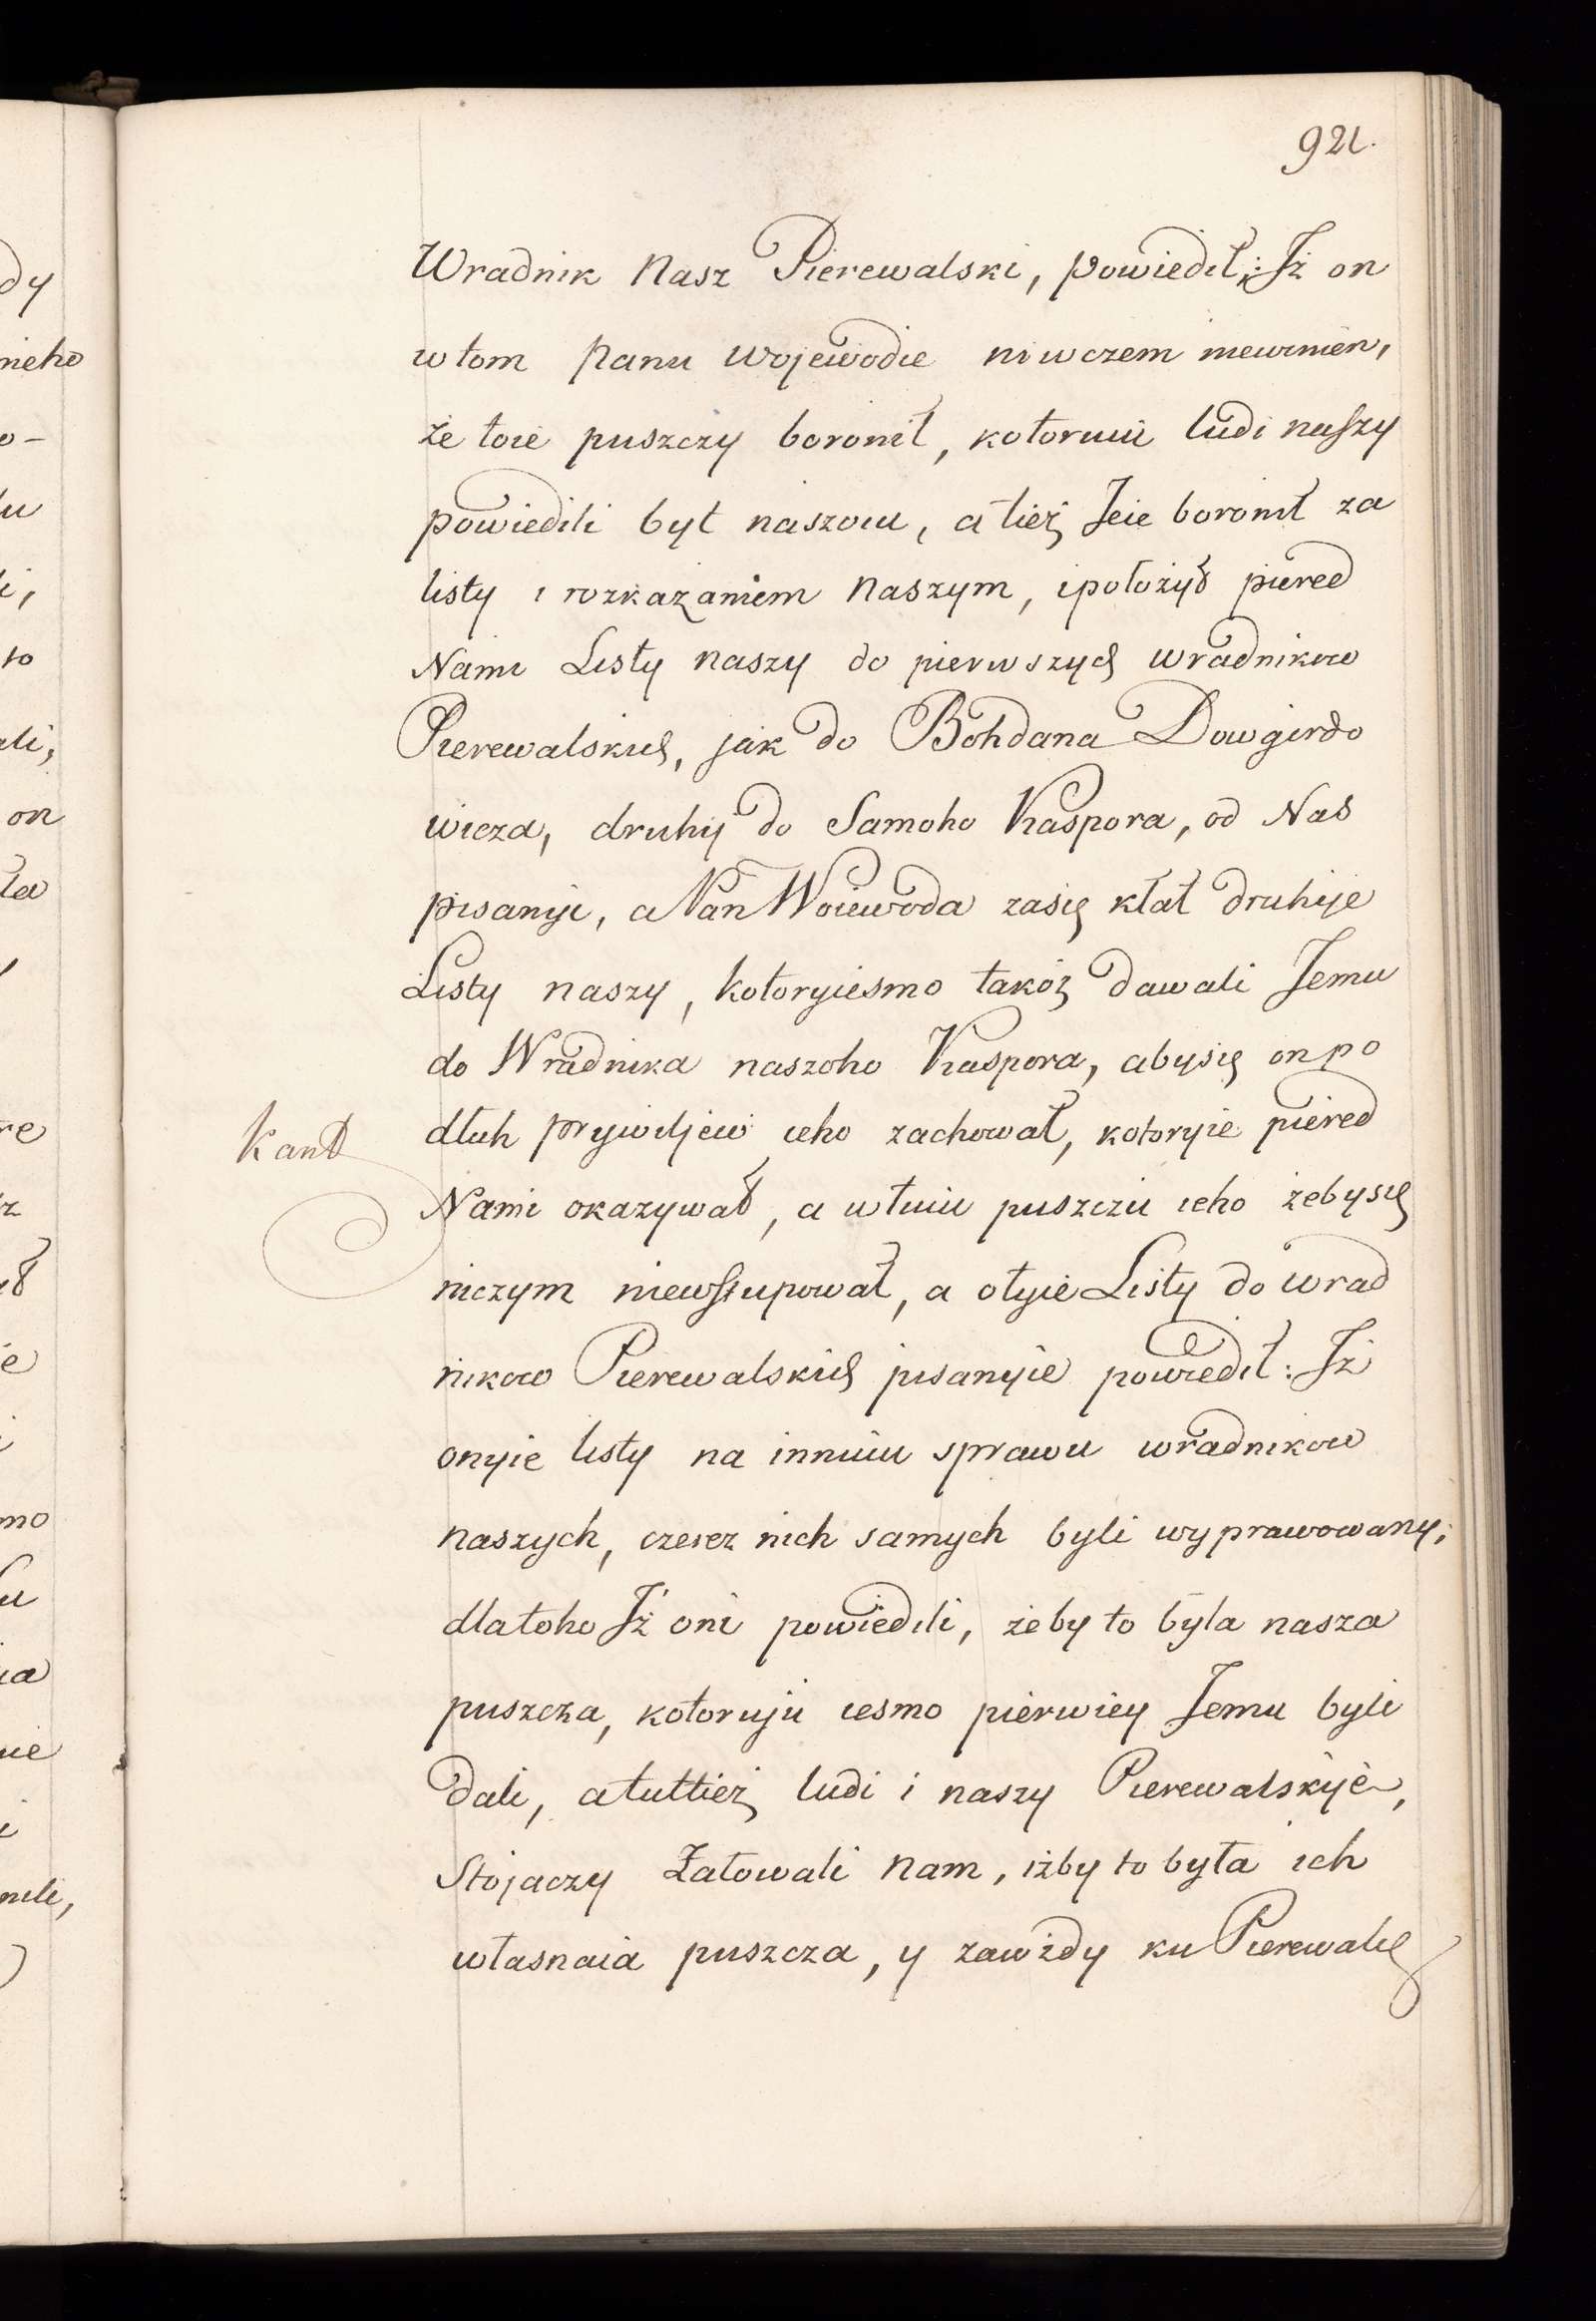 921.
Wradnik Nasz Pierewalski, powiedił: Iż on
w tom panu wojewodie ni w czem niewinien,
że toie puszczy boronił, kotoruiu ludi naszy
powiedili być naszoiu, a tież Jeie boronił za
listy i rozkazaniem Naszym, i położył piered
Nami Listy naszy do pierwszych wradnikow
Pierewalskich, jak do Bohdana Dowgirdo
wicza, druhij do Samoho Kaspora, od Nas
pisanyi, a Pan Woiewoda zasię kłał druhije
Listy naszy, kotoryiesmo takoż dawali Jemu
do Wradnika naszoho Kaspora, abysię on po
dłuh prywiljew ieho zachował, kotoryie piered
Nami okazywał, a w tuiu puszczu ieho żebysię
niczym niewstupował, a otyie Listy do wrad
nikow Pierewalskich pisanyie powiedił: Iż
onyie listy na innuiu sprawu wradnikow
naszych, czerez nich samych byli wyprawowany;
dlatoho Iż oni powiedili, żeby to była nasza
puszcza, kotoruju iesmo pierwiey Jemu byli
dali, a tuttież ludi i naszy Pierewalskije,
Stojaczy Żałowali Nam, iżby to była ich
własnaia puszcza, y zawżdy ku Pierewalu